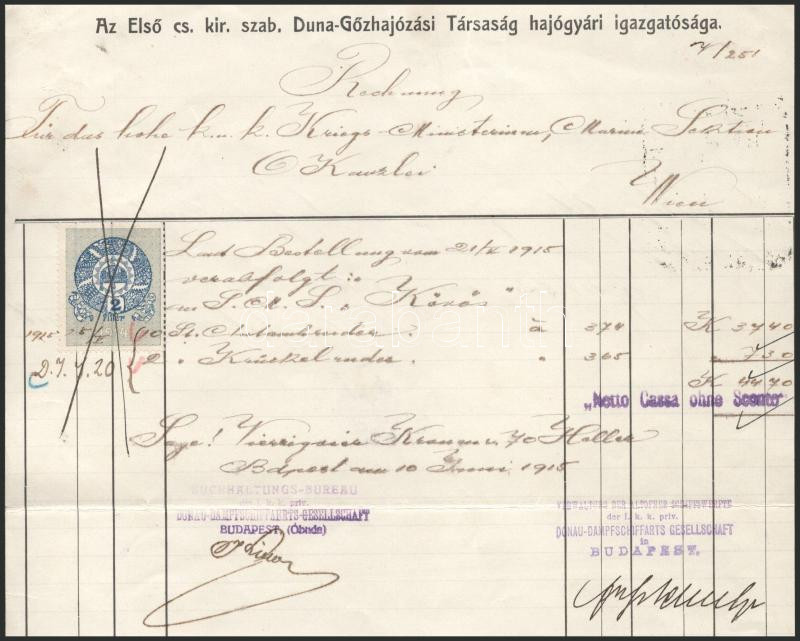 Az Első cs. kir. szab. Duna-Gőzhajózási Társaság hajógyári igazgatósága.
Rechnung
Für das hohe k. u. k. Kriegs-Ministerium, Marine Sektion
Kanzlei
Wien
Laut Bestellung vom 21/V 1915
verabfolgt:
an S. M. S. „Körös"
2
fillér
1915 10 St. ruder. à 374 K 3740
2 „ Krückelruder. „ 365 „ 730
K 4470
„Netto Cassa ohne Sconto"
Sage! Vierzig vier Kronen u. 70 Heller
Bdpest am 10 Juni 1915
BUCHHALTUNGS-BUREAU
der I. k. k. priv.
DONAU-DAMPFSCHIFFAHRTS-GESELLSCHAFT
BUDAPEST, (Óbuda)
VERWALTUNG DER ALTOFNER SCHIFFSWERFTE
der I. k. k. priv.
DONAU-DAMPFSCHIFFARTS GESELLSCHAFT
in
BUDAPEST.